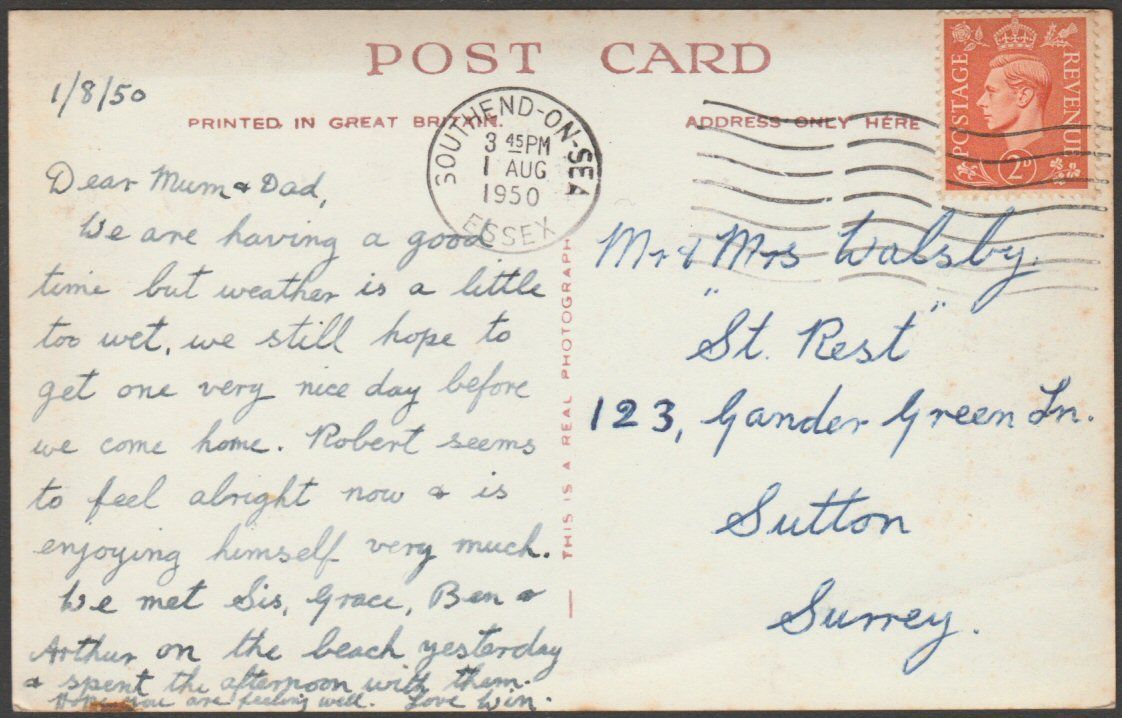 POST CARD
1/8/50
PRINTED IN GREAT BRITAIN.
ADDRESS ONLY HERE
SOUTHEND-ON-SEA
3 45PM
1 AUG
1950
ESSEX
POSTAGE
REVENUE
2D
Dear Mum & Dad,
We are having a good
time but weather is a little
too wet, we still hope to
get one very nice day before
we come home. Robert seems
to feel alright now & is
enjoying himself very much.
We met Sis, Grace, Ben &
Arthur on the beach yesterday
& spent the afternoon with them.
Hope you are feeling well. Love Win.
THIS IS A REAL PHOTOGRAPH
Mr & Mrs Walsby.
"St. Rest"
123, Gander Green Ln.
Sutton
Surrey.